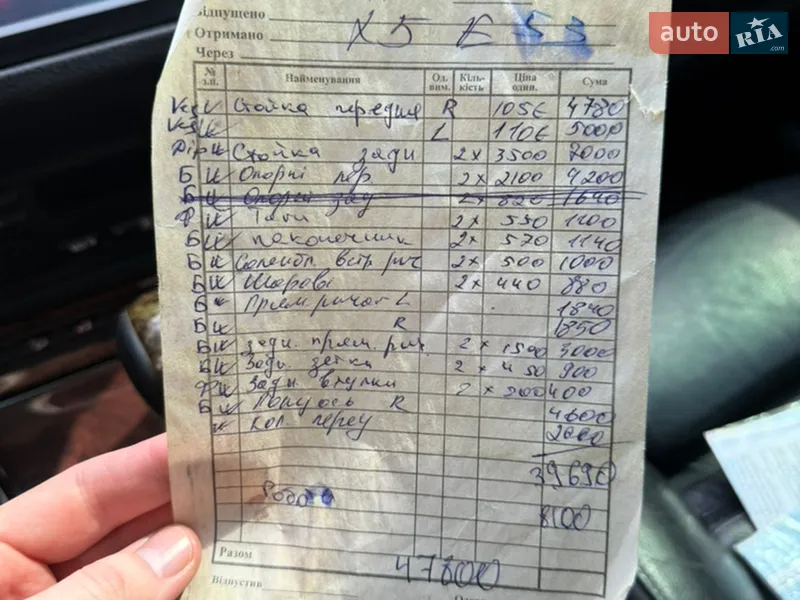 auto RIA .com
Відпущено
Отримано X5 E 53
Через
№ з.п. Найменування Од. вим. Кіль-кість Ціна один. Сума
Стойка передня R 105€ 4780
L 110€ 5000
Стойка зади 2x 3500 7000
Б Опорні пер 2x 2100 4200
Б Опорні зад 2x 820 1640
Ф Тяги 2x 550 1100
Б наконечник 2x 570 1140
Б Солейбл. встр. рич 2x 500 1000
Б Шарові 2x 440 880
Б Прям ричаг L 1840
Б R 1850
Б зади. прям. рич. 2 x 1500 3000
Б Зади. 2 x 450 900
Ф Зади втулки 2 x 200 400
Б Полуось R 4600
Кол. перед 2000
39690
Робота 8100
Разом 47800
Відпустив